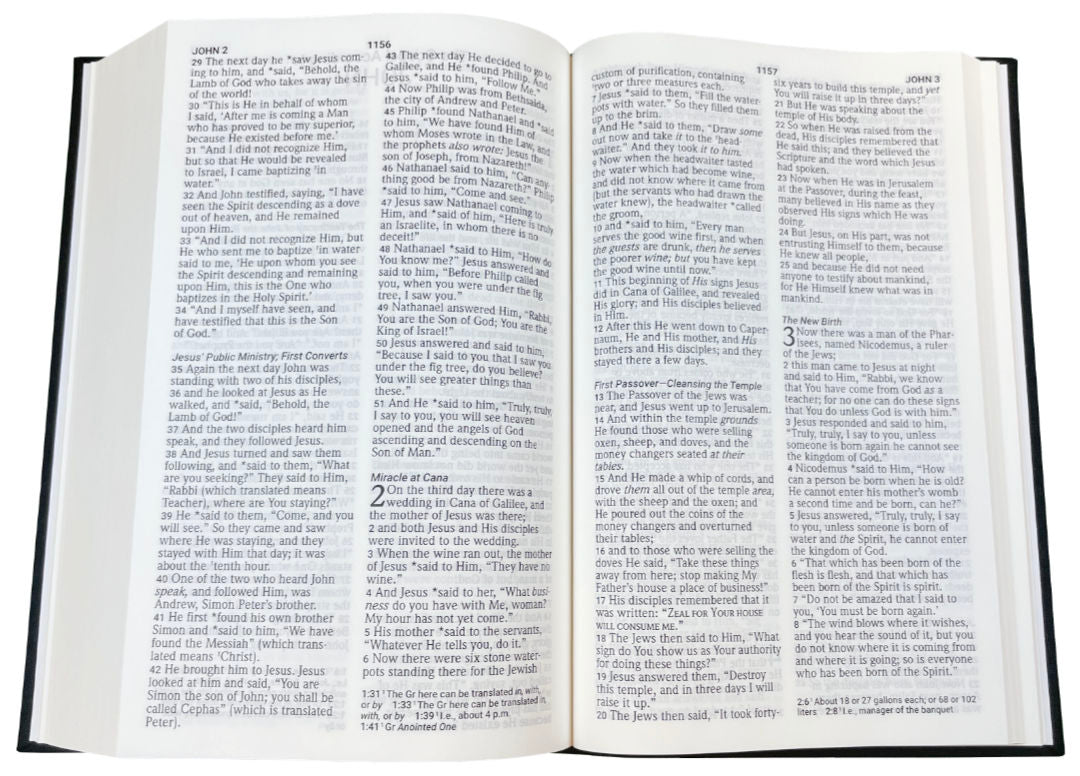 JOHN 2
1156
29 The next day he *saw Jesus com-
ing to him, and *said, “Behold, the
Lamb of God who takes away the sin
of the world!
30 “This is He in behalf of whom
I said, ‘After me is coming a Man
who has proved to be my superior,
because He existed before me.’
31 “And I did not recognize Him,
but so that He would be revealed
to Israel, I came baptizing ¹in
water.”
32 And John testified, saying, “I have
seen the Spirit descending as a dove
out of heaven, and He remained
upon Him.
33 “And I did not recognize Him, but
He who sent me to baptize ¹in water
said to me, ‘He upon whom you see
the Spirit descending and remaining
upon Him, this is the One who
baptizes in the Holy Spirit.’
34 “And I myself have seen, and
have testified that this is the Son
of God.”
Jesus’ Public Ministry, First Converts
35 Again the next day John was
standing with two of his disciples,
36 and he looked at Jesus as He
walked, and *said, “Behold, the
Lamb of God!”
37 And the two disciples heard him
speak, and they followed Jesus.
38 And Jesus turned and saw them
following, and *said to them, “What
are you seeking?” They said to Him,
“Rabbi (which translated means
Teacher), where are You staying?”
39 He *said to them, “Come, and you
will see.” So they came and saw
where He was staying, and they
stayed with Him that day; it was
about the ¹tenth hour.
40 One of the two who heard John
speak, and followed Him, was
Andrew, Simon Peter’s brother.
41 He first *found his own brother
Simon and *said to him, “We have
found the Messiah” (which trans-
lated means ¹Christ).
42 He brought him to Jesus. Jesus
looked at him and said, “You are
Simon the son of John; you shall be
called Cephas” (which is translated
Peter).
43 The next day He decided to go to
Galilee, and He *found Philip. And
Jesus *said to him, “Follow Me.”
44 Now Philip was from Bethsaida,
the city of Andrew and Peter.
45 Philip *found Nathanael and *said
to him, “We have found Him of
whom Moses wrote in the Law, and
the prophets also wrote: Jesus the
son of Joseph, from Nazareth!”
46 Nathanael said to him, “Can any-
thing good be from Nazareth?” Philip
*said to him, “Come and see.”
47 Jesus saw Nathanael coming to
Him, and *said of him, “Here is truly
an Israelite, in whom there is no
deceit!”
48 Nathanael *said to Him, “How do
You know me?” Jesus answered and
said to him, “Before Philip called
you, when you were under the fig
tree, I saw you.”
49 Nathanael answered Him, “Rabbi,
You are the Son of God; You are the
King of Israel!”
50 Jesus answered and said to him,
“Because I said to you that I saw you
under the fig tree, do you believe?
You will see greater things than
these.”
51 And He *said to him, “Truly, truly,
I say to you, you will see heaven
opened and the angels of God
ascending and descending on the
Son of Man.”
Miracle at Cana
2 On the third day there was a
wedding in Cana of Galilee, and
the mother of Jesus was there;
2 and both Jesus and His disciples
were invited to the wedding.
3 When the wine ran out, the mother
of Jesus *said to Him, “They have no
wine.”
4 And Jesus *said to her, “What busi-
ness do you have with Me, woman?
My hour has not yet come.”
5 His mother *said to the servants,
“Whatever He tells you, do it.”
6 Now there were six stone water-
pots standing there for the Jewish
1:31 ¹The Gr here can be translated in, with,
or by 1:33 ¹The Gr here can be translated in,
with, or by 1:39 ¹I.e., about 4 p.m.
1:41 ¹Gr Anointed One
1157
JOHN 3
custom of purification, containing
¹two or three measures each.
7 Jesus *said to them, “Fill the water-
pots with water.” So they filled them
up to the brim.
8 And He *said to them, “Draw some
out now and take it to the ¹head-
waiter.” And they took it to him.
9 Now when the headwaiter tasted
the water which had become wine,
and did not know where it came from
(but the servants who had drawn the
water knew), the headwaiter *called
the groom,
10 and *said to him, “Every man
serves the good wine first, and when
the guests are drunk, then he serves
the poorer wine; but you have kept
the good wine until now.”
11 This beginning of His signs Jesus
did in Cana of Galilee, and revealed
His glory; and His disciples believed
in Him.
12 After this He went down to Caper-
naum, He and His mother, and His
brothers and His disciples; and they
stayed there a few days.
First Passover—Cleansing the Temple
13 The Passover of the Jews was
near, and Jesus went up to Jerusalem.
14 And within the temple grounds
He found those who were selling
oxen, sheep, and doves, and the
money changers seated at their
tables.
15 And He made a whip of cords, and
drove them all out of the temple area,
with the sheep and the oxen; and
He poured out the coins of the
money changers and overturned
their tables;
16 and to those who were selling the
doves He said, “Take these things
away from here; stop making My
Father’s house a place of business!”
17 His disciples remembered that it
was written: “ZEAL FOR YOUR HOUSE
WILL CONSUME ME.”
18 The Jews then said to Him, “What
sign do You show us as Your authority
for doing these things?”
19 Jesus answered them, “Destroy
this temple, and in three days I will
raise it up.”
20 The Jews then said, “It took forty-
six years to build this temple, and yet
You will raise it up in three days?”
21 But He was speaking about the
temple of His body.
22 So when He was raised from the
dead, His disciples remembered that
He said this; and they believed the
Scripture and the word which Jesus
had spoken.
23 Now when He was in Jerusalem
at the Passover, during the feast,
many believed in His name as they
observed His signs which He was
doing.
24 But Jesus, on His part, was not
entrusting Himself to them, because
He knew all people,
25 and because He did not need
anyone to testify about mankind,
for He Himself knew what was in
mankind.
The New Birth
3 Now there was a man of the Phar-
isees, named Nicodemus, a ruler
of the Jews;
2 this man came to Jesus at night
and said to Him, “Rabbi, we know
that You have come from God as a
teacher; for no one can do these signs
that You do unless God is with him.”
3 Jesus responded and said to him,
“Truly, truly, I say to you, unless
someone is born again he cannot see
the kingdom of God.”
4 Nicodemus *said to Him, “How
can a person be born when he is old?
He cannot enter his mother’s womb
a second time and be born, can he?”
5 Jesus answered, “Truly, truly, I say
to you, unless someone is born of
water and the Spirit, he cannot enter
the kingdom of God.
6 “That which has been born of the
flesh is flesh, and that which has
been born of the Spirit is spirit.
7 “Do not be amazed that I said to
you, ‘You must be born again.’
8 “The wind blows where it wishes,
and you hear the sound of it, but you
do not know where it is coming from
and where it is going; so is everyone
who has been born of the Spirit.”
2:6 ¹About 18 or 27 gallons each; or 68 or 102
liters 2:8 ¹I.e., manager of the banquet